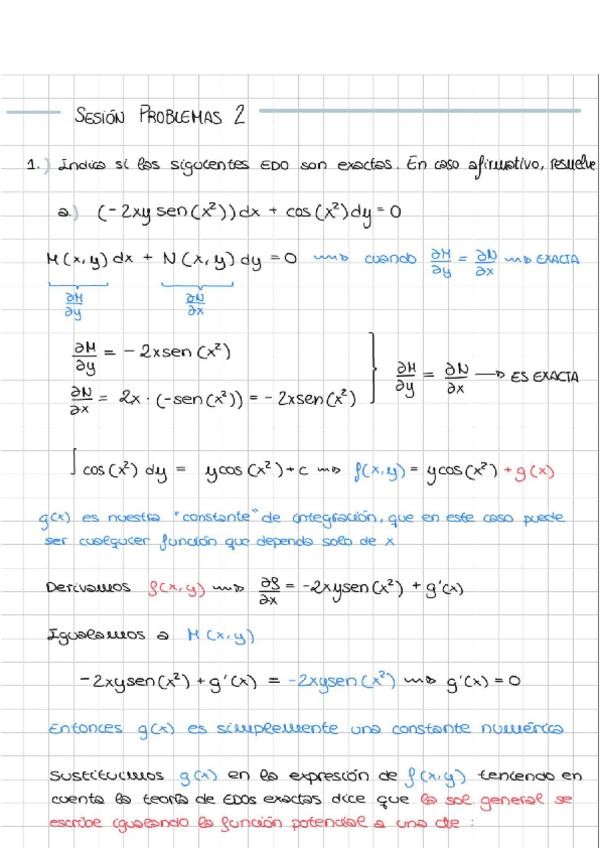 SESIÓN PROBLEMAS 2
1.) Indica si las siguientes EDO son exactas. En caso afirmativo, resuelve
a.) (-2xy sen(x²))dx + cos(x²)dy = 0
M(x,y)dx + N(x,y)dy = 0 ⟿ cuando ∂M/∂y = ∂N/∂x ⟿ EXACTA
∂M/∂y ∂N/∂x
∂M/∂y = -2xsen(x²)
∂N/∂x = 2x·(-sen(x²)) = -2xsen(x²) } ∂M/∂y = ∂N/∂x → ES EXACTA
∫cos(x²) dy = ycos(x²)+c ⟿ f(x,y) = ycos(x²) + g(x)
g(x) es nuestra "constante" de integración, que en este caso puede
ser cualquier función que dependa solo de x
Derivamos f(x,y) ⟿ ∂f/∂x = -2xysen(x²) + g'(x)
Igualamos a M(x,y)
-2xysen(x²) + g'(x) = -2xysen(x²) ⟿ g'(x) = 0
Entonces g(x) es simplemente una constante numérica
Sustituimos g(x) en la expresión de f(x,y) teniendo en
cuenta la teoría de EDOs exactas dice que la sol. general se
escribe igualando la función potencial a una cte: